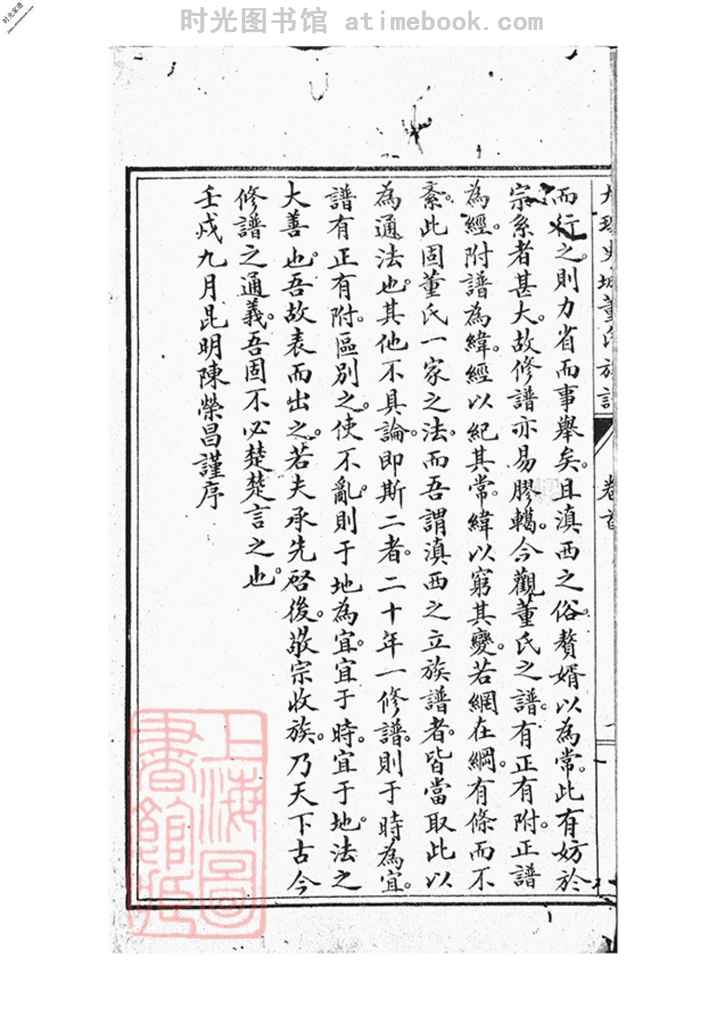 时光图书馆 atimebook.com
时光家谱
大理史城董氏族譜 卷首
而行之。則力省而事舉矣。且滇西之俗。贅婿以為常。此有妨於
宗系者甚大。故修譜亦易膠轕。今觀董氏之譜。有正有附。正譜
為經。附譜為緯。經以紀其常。緯以窮其變。若網在綱。有條而不
紊。此固董氏一家之法。而吾謂滇西之立族譜者。皆當取此以
為通法也。其他不具論。即斯二者。二十年一修譜。則于時為宜。
譜有正有附。區別之。使不亂。則于地為宜。宜于時。宜于地。法之
大善也。吾故表而出之。若夫承先啓後。敬宗收族。乃天下古今
修譜之通義。吾固不必楚楚言之也。
壬戍九月昆明陳榮昌謹序
上海圖
書館藏